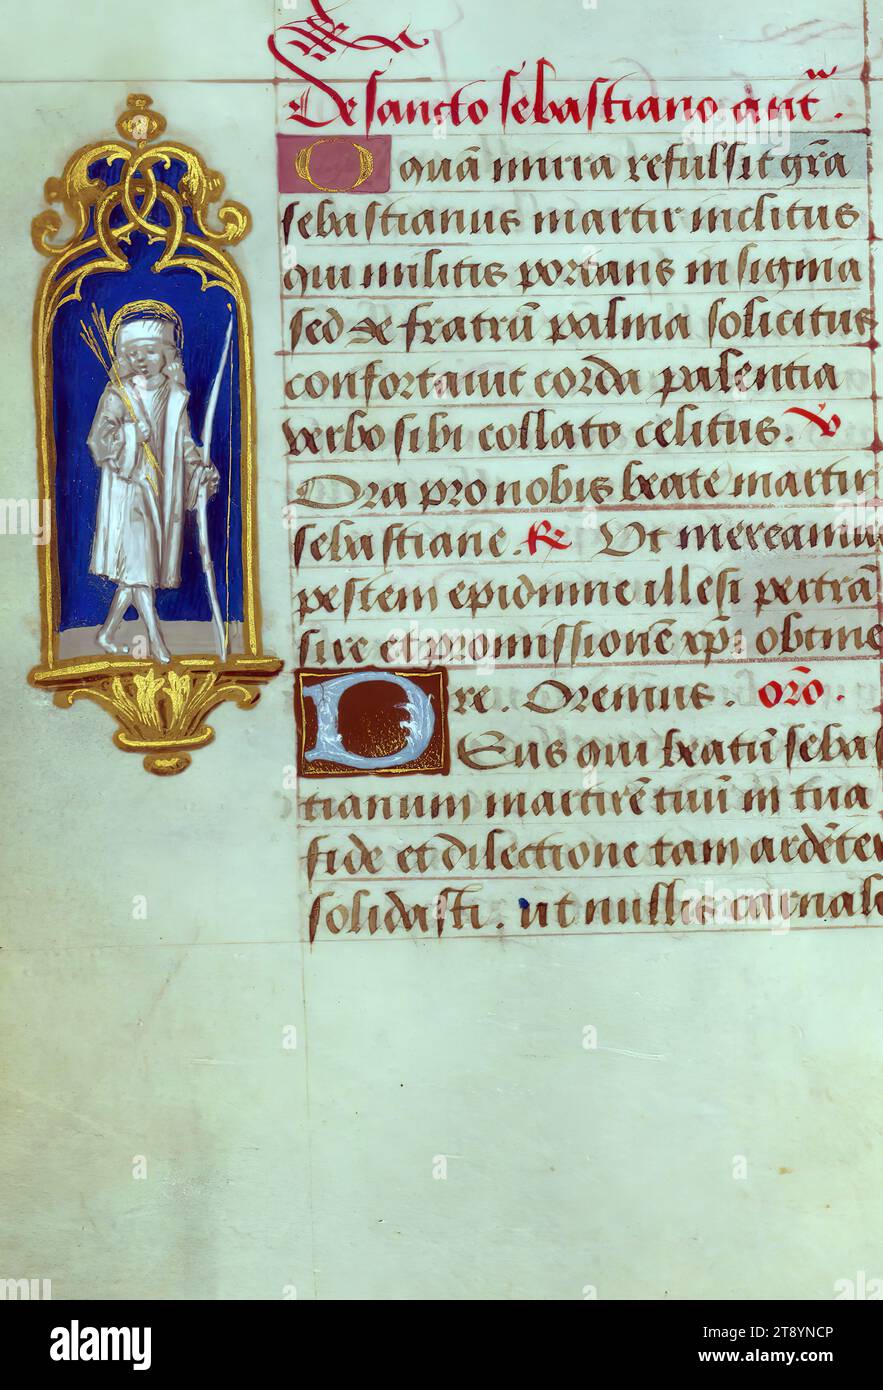 De sancto sebastiano anť.
O quā mira refulsit grā
sebastianus martir inclitus
qui militis portans insignia
sed de fratrū palma solicitus
confortavit corda palentia
verbo sibi collato celitus. V
Ora pro nobis beate martir
sebastiane. R Ut mereamu
pestem epidimie illesi pertrā
sire et promissionē xp̄i obtine
re. Oremus. orō.
Deus qui beatū sebas
tianum martirē tuū in tua
fide et dilectione tam ardēte
solidasti. ut nullis carnal
alamy
Image ID: 2T8YNCP
www.alamy.com